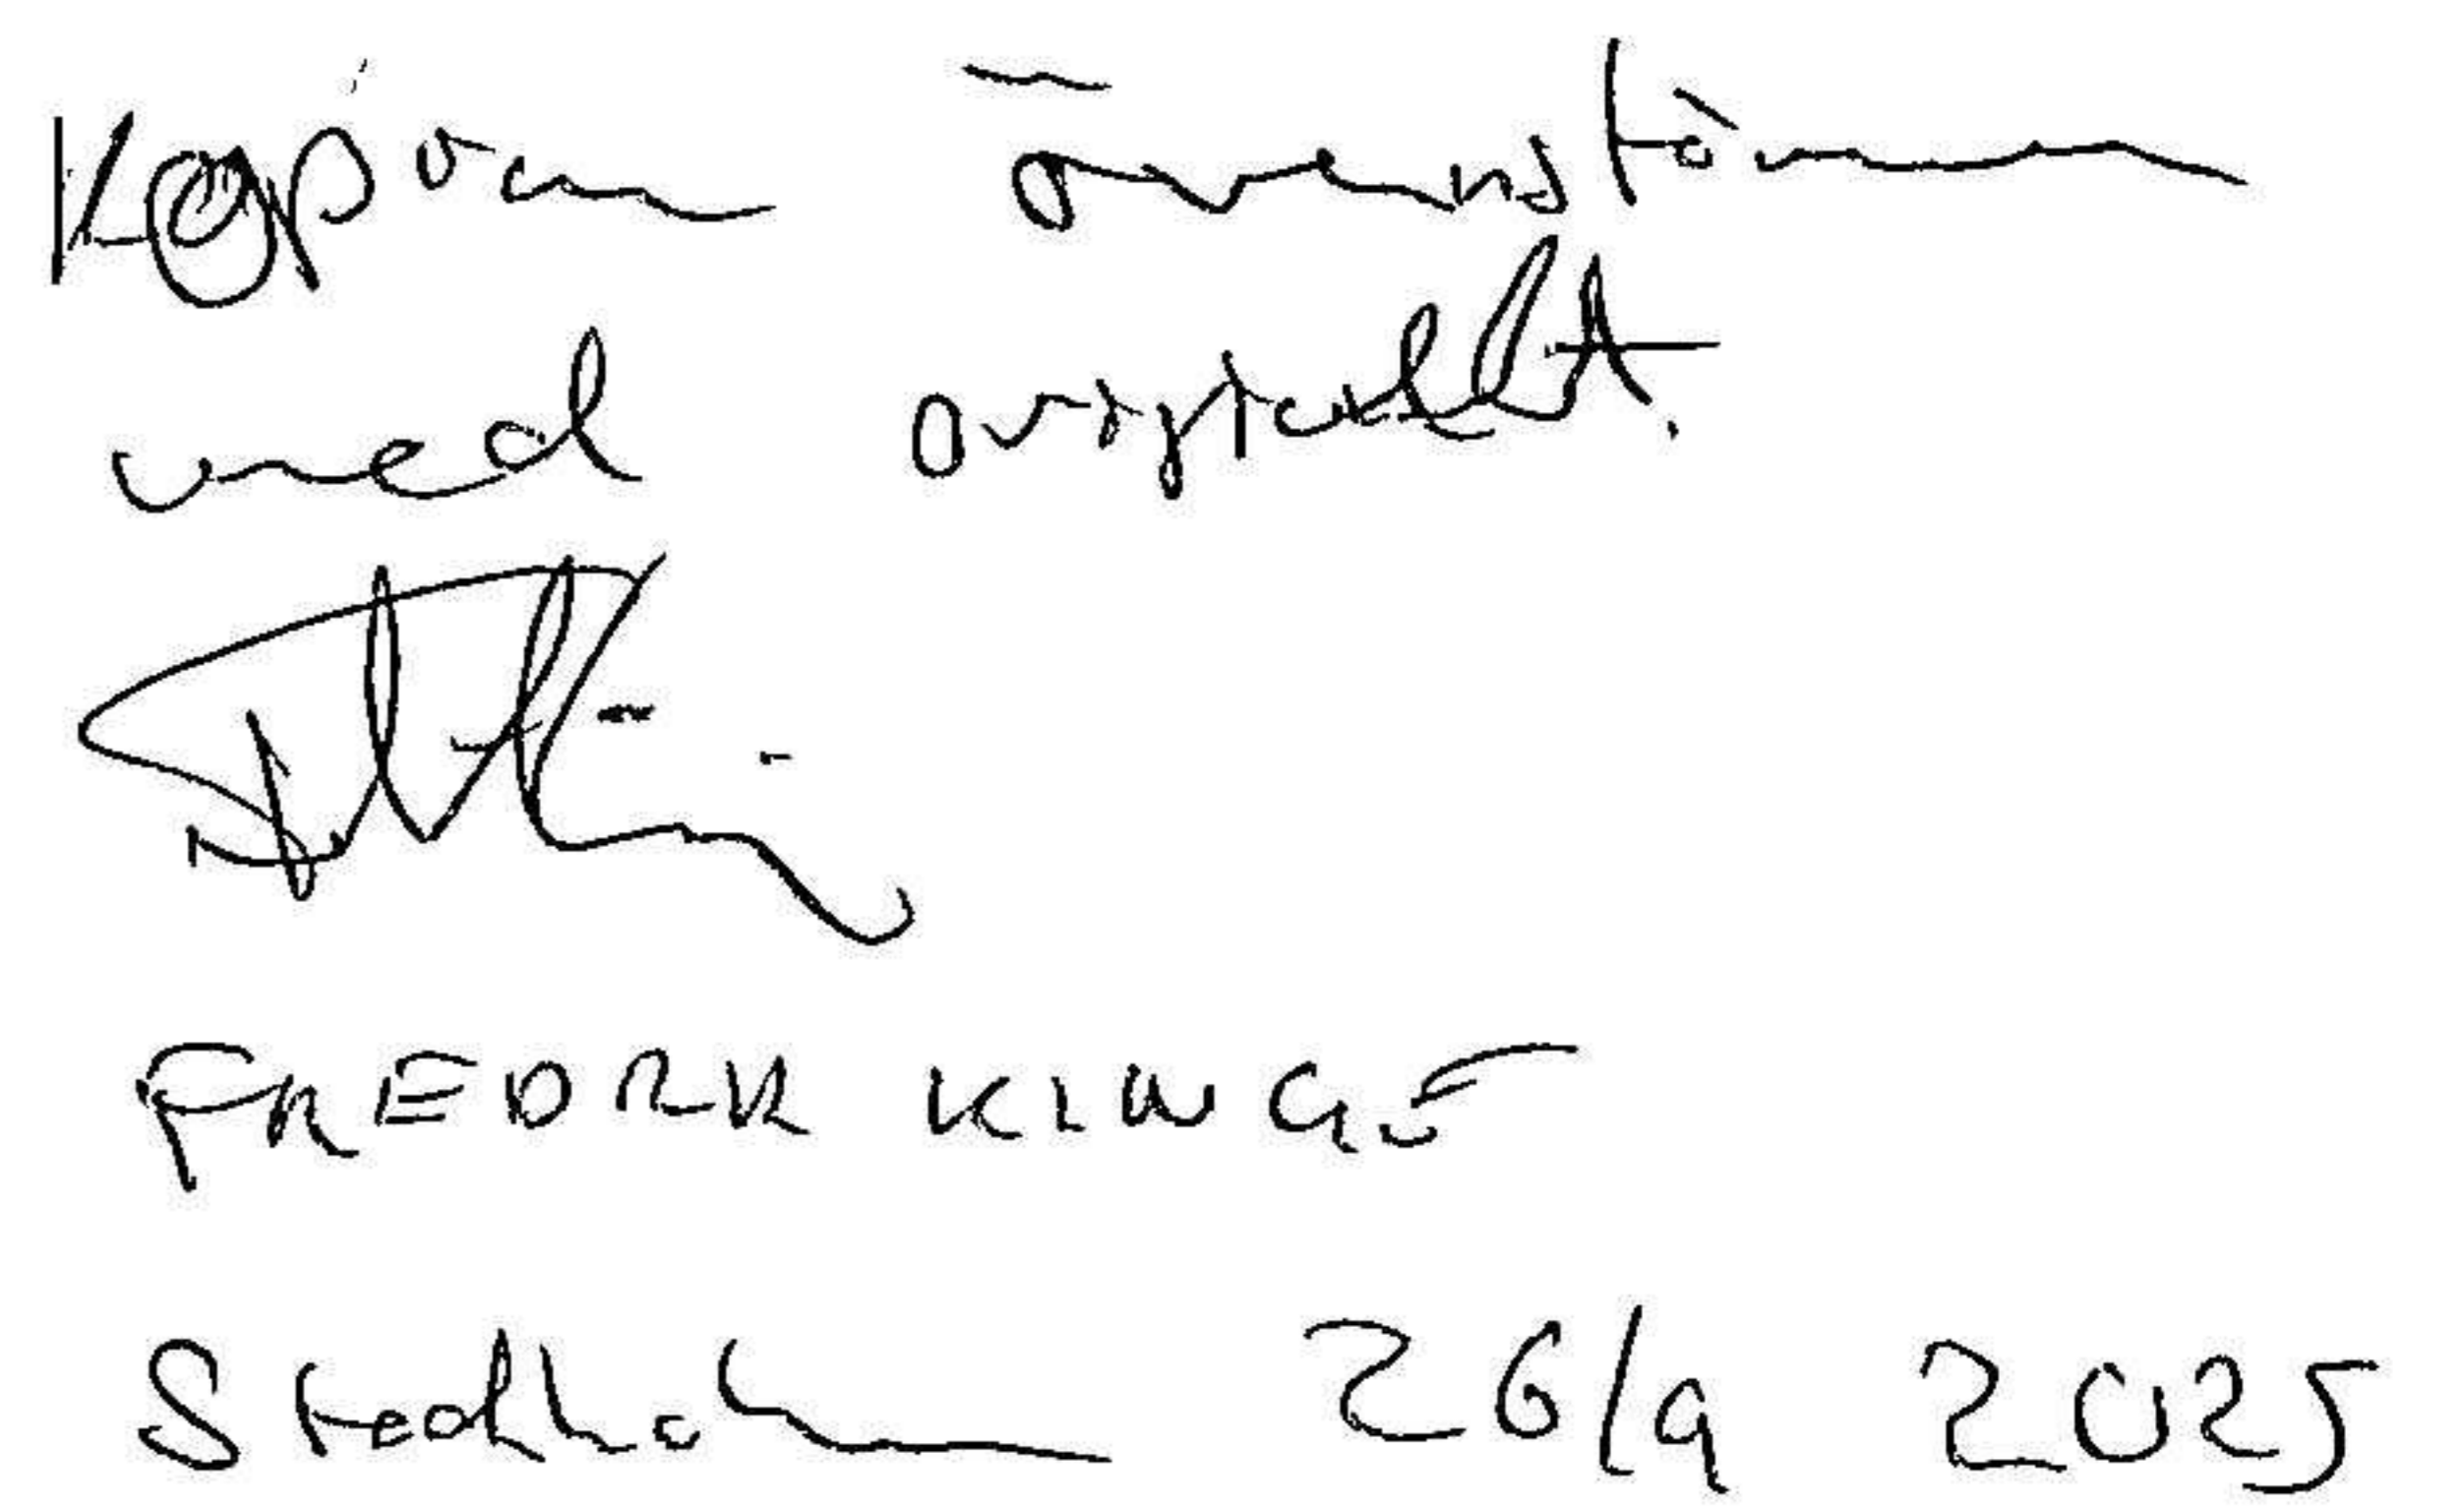 Kopian överensstämmer
med originalet.
FREDRIK KINGE
Stockholm 26/9 2025